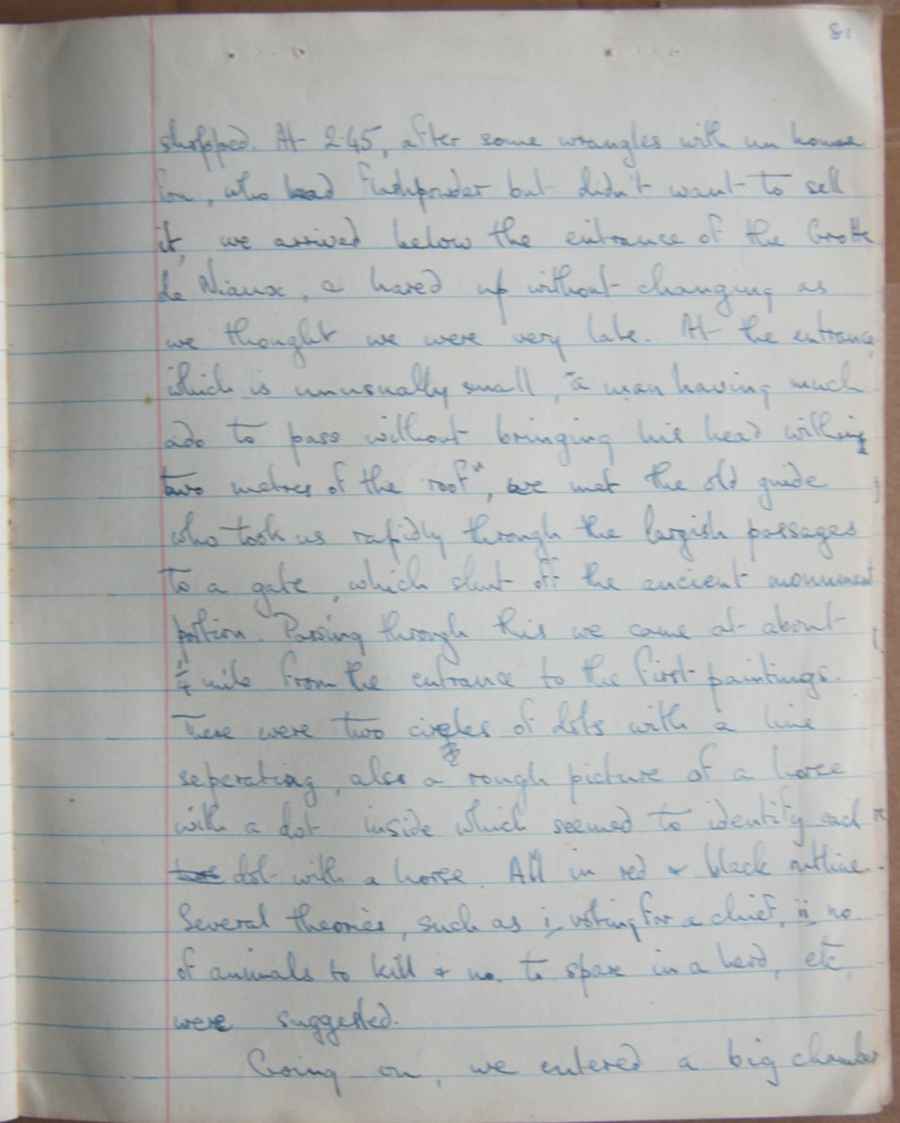 81
shopped. At 2.45, after some wrangles with un homme
who had but didn't want to sell
it, we arrived below the entrance of the Grotte
de Niaux, & hared up without changing as
we thought we were very late. At the entrance,
which is unusually small, "a man having much
ado to pass without bringing his head within
two metres of the roof", we met the old guide
who took us rapidly through the largish passages
to a gate, which shut off the ancient monument
portion. Passing through this we came at about
¼ mile from the entrance to the first paintings.
There were two circles of dots with a line
seperating, also a rough picture of a horse
with a dot inside which seemed to identify each
dot with a horse. All in red & black outline.
Several theories, such as i, voting for a chief, ii, no
of animals to kill & no. to spare in a herd, etc,
were suggested.
Going on, we entered a big chamber